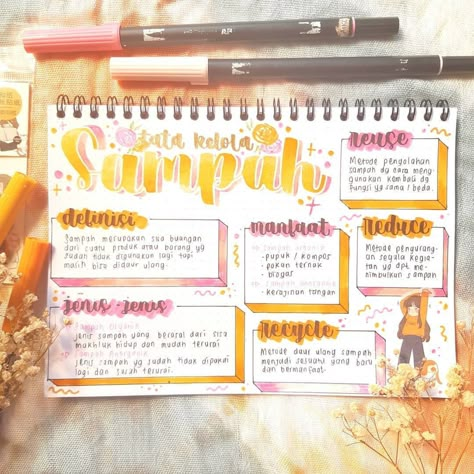 tata kelola
Sampah
definisi
Sampah merupakan sisa buangan
dari suatu produk atau barang yg
sudah tidak digunakan lagi tapi
masih bisa didaur ulang.
jenis-jenis
Sampah Organik
jenis sampah yang berasal dari sisa
makhluk hidup dan mudah terurai
Sampah Anorganik
jenis sampah yg sudah tidak dipakai
lagi dan susah terurai.
manfaat
Sampah organik
- pupuk / kompos
- pakan ternak
- biogas
Sampah anorganik
- kerajinan tangan
reuse
Metode pengolahan
sampah dg cara meng-
gunakan kembali dg
fungsi yg sama / beda.
reduce
Metode pengurang-
an segala kegia-
tan yg dpt me-
nimbulkan sampah
recycle
Metode daur ulang sampah
menjadi sesuatu yang baru
dan bermanfaat.